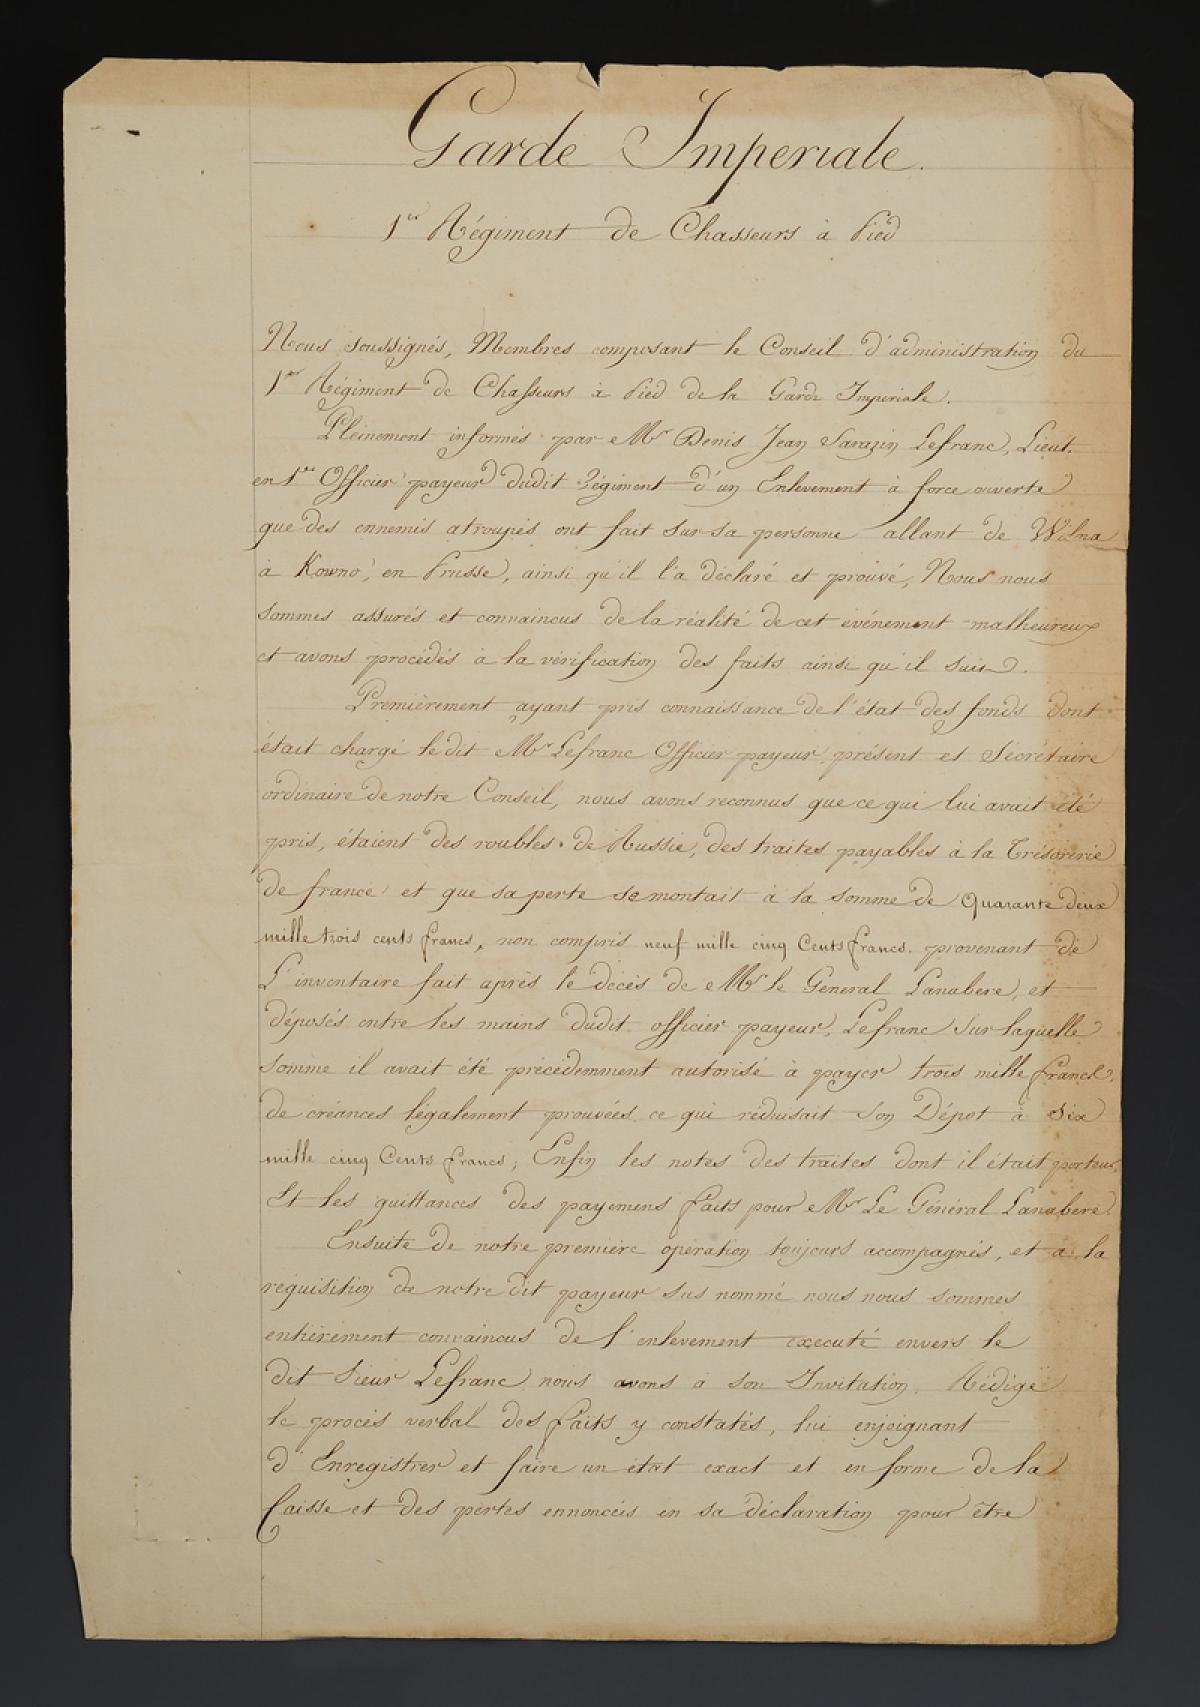 Garde Imperiale.
1er Régiment de Chasseurs à Pied
Nous soussignés, Membres composant le Conseil d'administration du
1er Régiment de Chasseurs à Pied de la Garde Imperiale.
Pleinement informés par Mr Denis Jean Sarazin Lefranc, Lieut.
en 1er Officier payeur dudit Régiment d'un Enlevement à force ouverte
que des ennemis atroupés ont fait sur sa personne allant de Wilna
à Kowno, en Prusse, ainsi qu'il l'a déclaré et prouvé, Nous nous
sommes assurés et convaincus de la réalité de cet événement malheureux
et avons procédés à la vérification des faits ainsi qu'il suit.
Premièrement ayant pris connaissance de l'état des fonds dont
était chargé ledit Mr Lefranc Officier payeur présent et Sécrétaire
ordinaire de notre Conseil, nous avons reconnus que ce qui lui avait été
pris, étaient des roubles de Russie, des traites payables à la Trésorerie
de france et que sa perte se montait à la somme de Quarante deux
mille trois cents francs, non compris neuf mille cinq Cents francs. provenant de
L'inventaire fait après le décès de Mr le Géneral Lanabere, et
déposés entre les mains dudit officier payeur, Lefranc Sur laquelle
somme il avait été précédemment autorisé à payer trois mille francs.
de créances légalement prouvées ce qui réduisait son Dépot à Six
mille cinq Cents francs; Enfin les notes des traites dont il était porteur
Et les quittances des payemens faits pour Mr Le Général Lanabere.
Ensuite de notre première opération toujours accompagnés, et à la
requisition de notre dit payeur sus nommé nous nous sommes
entièrement convaincus de l'enlevement executé envers le
dit Sieur Lefranc nous avons à son Invitation, Rédigé
le procès verbal des faits y constatés, lui enjoignant
d'Enregistrer et faire un état exact et en forme de la
Caisse et des pertes ennoncéés en sa déclaration pour être